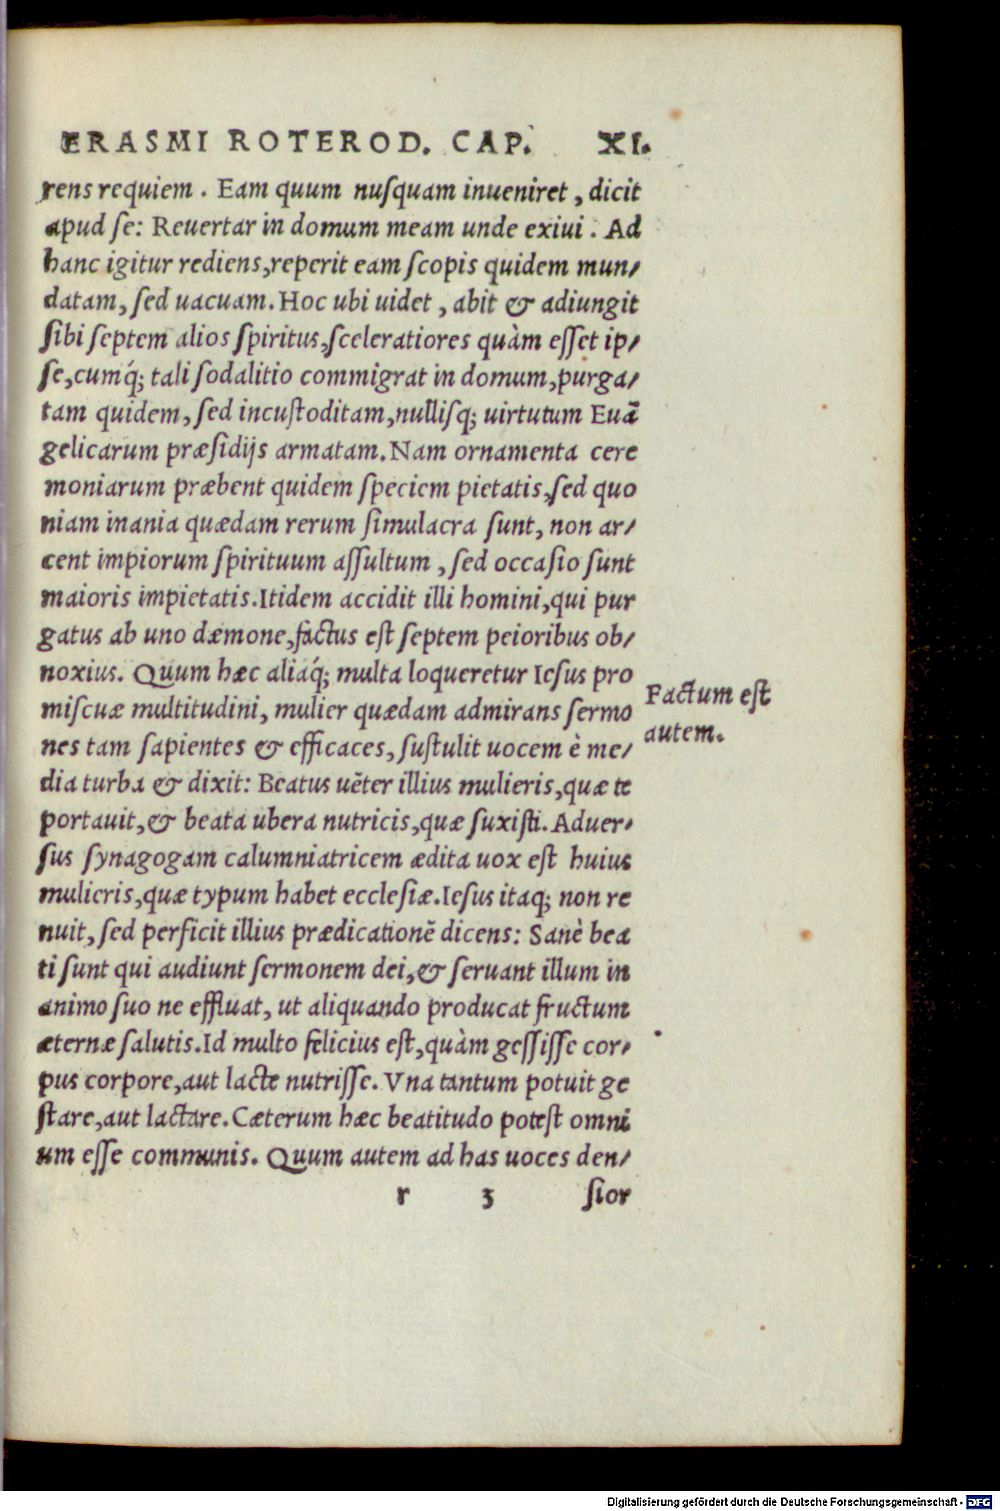 ERASMI ROTEROD. CAP. XI.
rens requiem . Eam quum nusquam inueniret , dicit
apud se: Reuertar in domum meam unde exiui . Ad
hanc igitur rediens,reperit eam scopis quidem mun/
datam, sed uacuam. Hoc ubi uidet , abit & adiungit
sibi septem alios spiritus,sceleratiores quàm esset ip/
se,cumq́; tali sodalitio commigrat in domum,purga/
tam quidem, sed incustoditam,nullisq; uirtutum Euã
gelicarum præsidijs armatam. Nam ornamenta cere
moniarum præbent quidem speciem pietatis,sed quo
niam inania quædam rerum simulacra sunt, non ar/
cent impiorum spirituum assultum , sed occasio sunt
maioris impietatis.Itidem accidit illi homini,qui pur
gatus ab uno dæmone,factus est septem peioribus ob/
noxius. Quum hæc aliaq́; multa loqueretur Iesus pro
miscuæ multitudini, mulier quædam admirans sermo
nes tam sapientes & efficaces, sustulit uocem è me/
dia turba & dixit: Beatus uẽter illius mulieris,quæ te
portauit,& beata ubera nutricis,quæ suxisti. Aduer/
sus synagogam calumniatricem ædita uox est huius
mulieris,quæ typum habet ecclesiæ.Iesus itaq; non re
nuit, sed perficit illius prædicationẽ dicens: Sanè bea
ti sunt qui audiunt sermonem dei,& seruant illum in
animo suo ne effluat, ut aliquando producat fructum
æternæ salutis.Id multo felicius est,quàm gessisse cor/
pus corpore,aut lacte nutrisse. Vna tantum potuit ge
stare,aut lactare. Cæterum hæc beatitudo potest omni
um esse communis. Quum autem ad has uoces den/
r 3 sior
Factum est
autem.
Digitalisierung gefördert durch die Deutsche Forschungsgemeinschaft - DFG